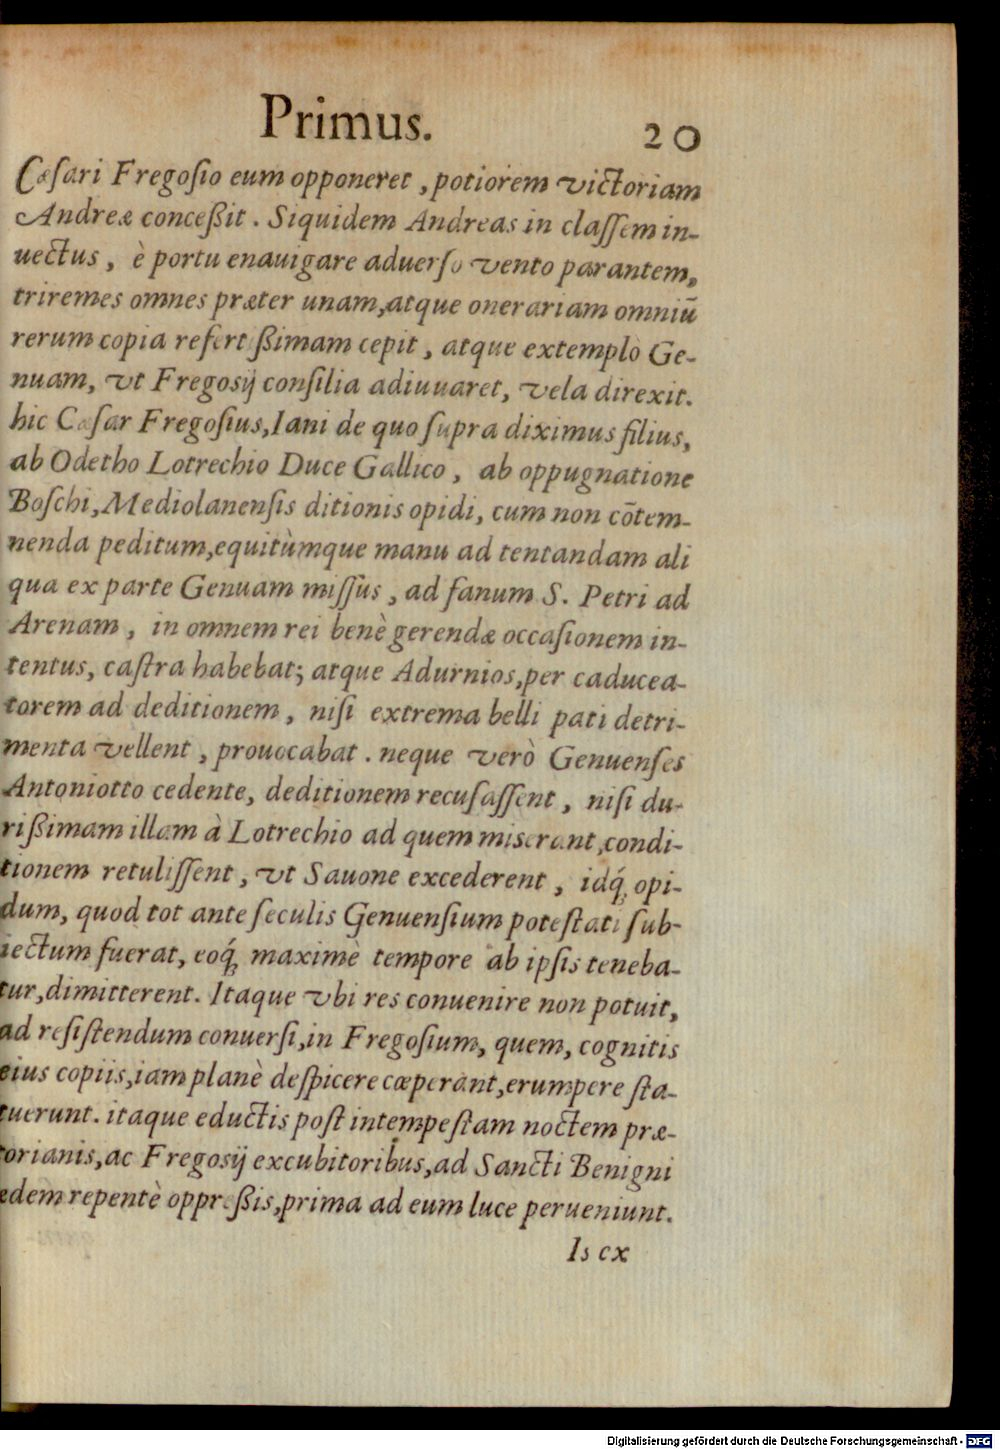 Primus. 20
Cæſari Fregoſio eum opponeret, potiorem victoriam
Andreæ conceßit. Siquidem Andreas in claſſem in-
uectus, è portu enauigare aduerſo vento parantem,
triremes omnes præter unam, atque onerariam omniū
rerum copia refertißimam cepit, atque extemplò Ge-
nuam, vt Fregosij conſilia adiuuaret, vela direxit.
hic Cæſar Fregoſius, Iani de quo ſupra diximus filius,
ab Odetho Lotrechio Duce Gallico, ab oppugnatione
Boſchi, Mediolanenſis ditionis opidi, cum non cōtem-
nenda peditum, equitùmque manu ad tentandam ali
qua ex parte Genuam miſſus, ad fanum S. Petri ad
Arenam, in omnem rei benè gerendæ occaſionem in-
tentus, caſtra habebat; atque Adurnios, per caducea-
torem ad deditionem, niſi extrema belli pati detri-
menta vellent, prouocabat. neque verò Genuenſes
Antoniotto cedente, deditionem recuſaſſent, niſi du-
rißimam illam à Lotrechio ad quem miserant, condi-
tionem retuliſſent, vt Sauone excederent, idq́; opi-
dum, quod tot ante ſeculis Genuenſium poteſtati ſub-
iectum fuerat, eoq́; maximè tempore ab ipſis teneba-
tur, dimitterent. Itaque vbi res conuenire non potuit,
ad reſiſtendum conuerſi, in Fregoſium, quem, cognitis
eius copiis, iam planè deſpicere cœperant, erumpere ſta-
tuerunt. itaque eductis poſt intempeſtam noctem præ-
torianis, ac Fregosij excubitoribus, ad Sancti Benigni
edem repentè oppreßis, prima ad eum luce perueniunt.
Is ex
Digitalisierung gefördert durch die Deutsche Forschungsgemeinschaft - DFG